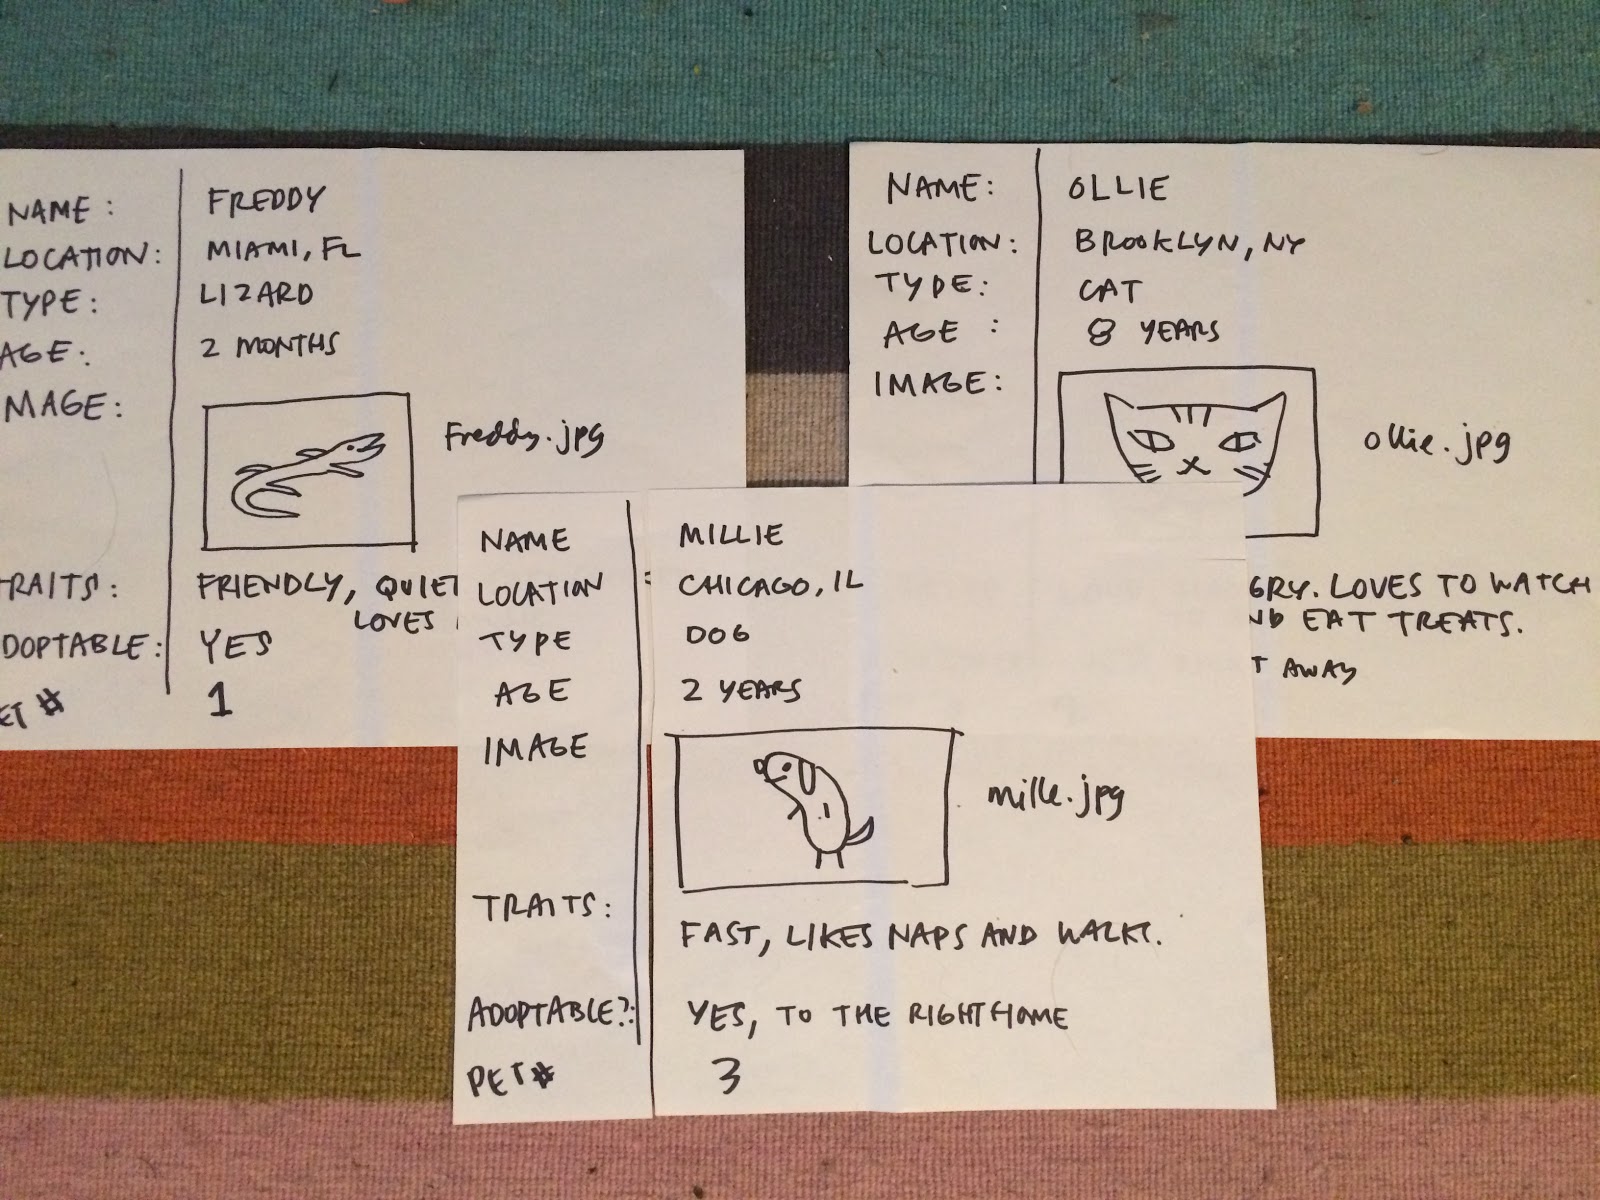 NAME: FREDDY
LOCATION: MIAMI, FL
TYPE: LIZARD
AGE: 2 MONTHS
MAGE:
Freddy.jpg
TRAITS: FRIENDLY, QUIET
LOVES
DOPTABLE: YES
ET # 1
NAME: OLLIE
LOCATION: BROOKLYN, NY
TYPE: CAT
AGE: 8 YEARS
IMAGE:
ollie.jpg
GRY. LOVES TO WATCH
ND EAT TREATS.
T AWAY
NAME MILLIE
LOCATION CHICAGO, IL
TYPE DOG
AGE 2 YEARS
IMAGE
mille.jpg
TRAITS:
FAST, LIKES NAPS AND WALKS.
ADOPTABLE?: YES, TO THE RIGHT HOME
PET# 3